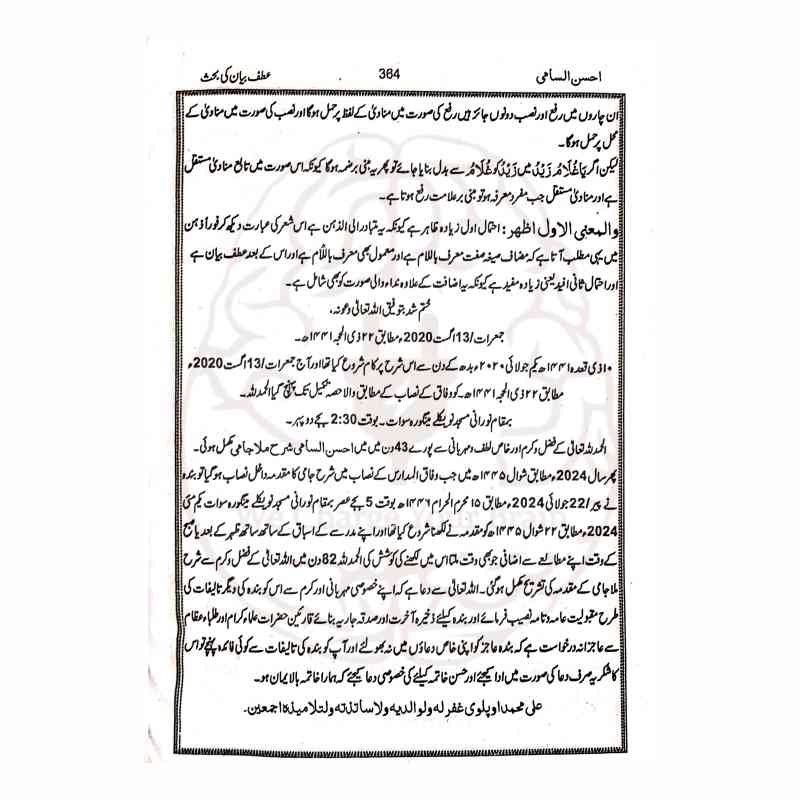 احسن السامی 364 عطف بیان کی بحث
ان چاروں میں رفع اور نصب دونوں جائز ہیں رفع کی صورت میں منادیٰ کے لفظ پر حمل ہوگا اور نصب کی صورت میں منادیٰ کے
محل پر حمل ہوگا۔
لیکن اگر یَا غُلَامُ زَیْدُ میں زَیْدُ کو غُلَامُ سے بدل بنایا جائے تو پھر یہ مبنی برضمہ ہوگا کیونکہ اس صورت میں تابع منادیٰ مستقل
ہے اور منادیٰ مستقل جب مفرد معرفہ ہو تو مبنی بر علامت رفع ہوتا ہے۔
والمعنی الاول اظهر: احتمال اول زیادہ ظاہر ہے کیونکہ یہ متبادر الی الذہن ہے اس شعر کی عبارت دیکھ کر فوراً ذہن
میں یہی مطلب آتا ہے کہ مضاف صیغہ صفت معرف باللام ہے اور معمول بھی معرف باللّام ہے اور اس کے بعد عطف بیان ہے
اور احتمال ثانی افید یعنی زیادہ مفید ہے کیونکہ یہ اضافت کے علاوہ نداء والی صورت کو بھی شامل ہے۔
ختم شد بتوفیق اللہ تعالیٰ وعونہ،
جمعرات/13 اگست 2020ء مطابق ۲۲ ذی الحجہ ۱۴۴۱ھ۔
۱۰ ذی قعدہ ۱۴۴۱ھ یکم جولائی ۲۰۲۰ء بدھ کے دن سے اس شرح پر کام شروع کیا تھا اور آج جمعرات/13 اگست 2020ء
مطابق ۲۲ ذی الحجہ ۱۴۴۱ھ۔ کو وفاق کے نصاب کے مطابق والا حصہ تکمیل تک پہنچ گیا الحمدللہ۔
بمقام نورانی مسجد نویکلے مینگورہ سوات۔ بوقت 2:30 بجے دوپہر۔
الحمد للہ تعالیٰ کے فضل وکرم اور خاص لطف و مہربانی سے پورے 43 دن میں میں احسن السامی شرح ملا جامی مکمل ہوئی۔
پھر سال 2024ء مطابق شوال ۱۴۴۵ھ میں جب وفاق المدارس کے نصاب میں شرح جامی کا مقدمہ داخل نصاب ہوگیا تو بندہ
نے پیر/22 جولائی 2024ء مطابق ۱۵ محرم الحرام ۱۴۴۶ھ بوقت 5 بجے عصر بمقام نورانی مسجد نویکلے مینگورہ سوات یکم مئی
2024ء مطابق ۲۲ شوال ۱۴۴۵ھ کو مقدمہ نے لکھنا شروع کیا تھا اور اپنے مدرسے کے اسباق کے ساتھ ساتھ ظہر کے بعد یا صبح
کے وقت اپنے مطالعے سے اضافی جو بھی وقت ملتا اس میں لکھنے کی کوشش کی الحمدللہ 82 دن میں اللہ تعالیٰ کے فضل وکرم سے شرح
ملا جامی کے مقدمہ کی تشریح مکمل ہوگئی۔ اللہ تعالیٰ سے دعا ہے کہ اپنے خصوصی مہربانی اور کرم سے اس کو بندہ کی دیگر تالیفات کی
طرح مقبولیت عامہ و تامہ نصیب فرمائے اور بندہ کیلئے ذخیرہ آخرت اور صدقہ جاریہ بنائے قارئین حضرات علماء کرام اور طلباء عظام
سے عاجزانہ درخواست ہے کہ بندہ عاجز کو اپنی خاص دعاؤں میں نہ بھولئے اور آپ کو بندہ کی تالیفات سے کوئی فائدہ پہنچے تو اس
کا شکریہ صرف دعا کی صورت میں ادا کیجئے اور حسن خاتمہ کیلئے کی خصوصی دعا کیجئے کہ ہمارا خاتمہ بالایمان ہو۔
علی محمد اوپلوی غفر له ولوالدیه ولاساتذته ولتلامیذه اجمعین۔